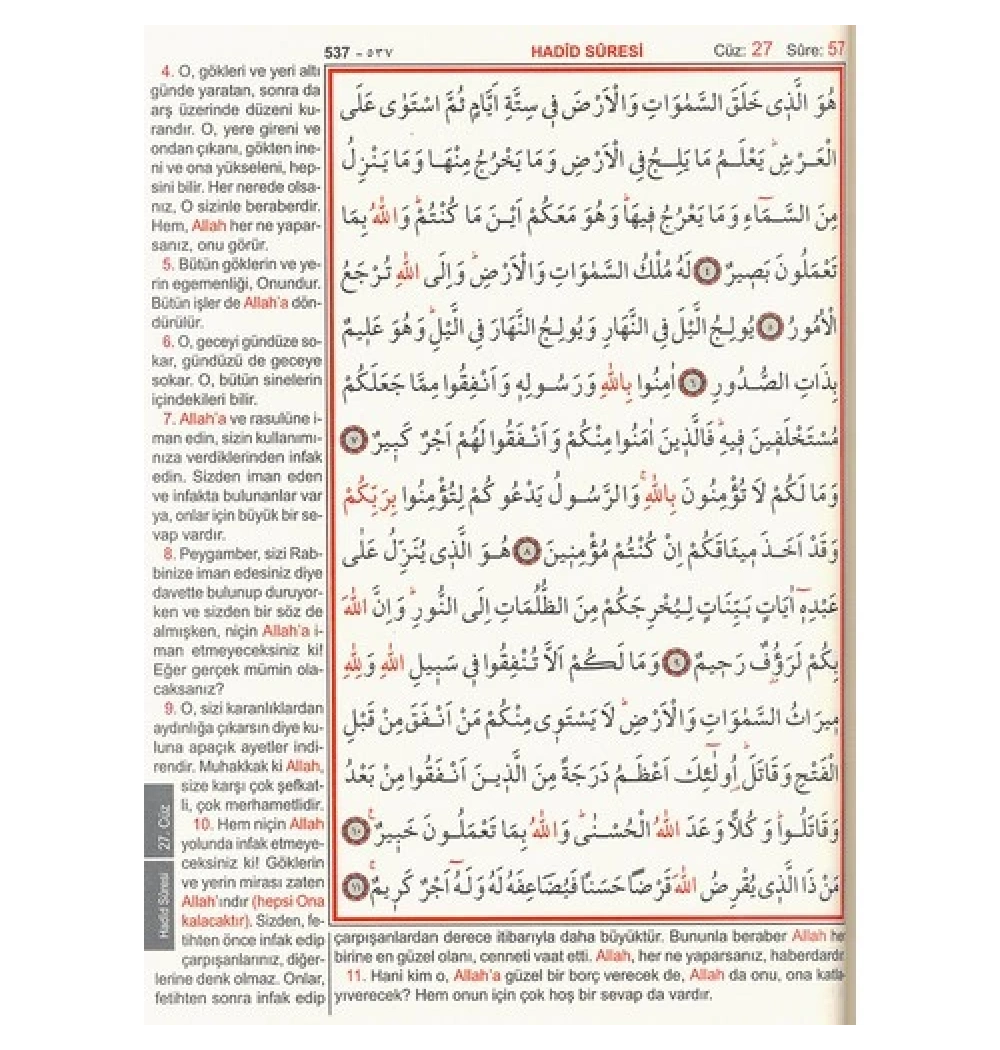 537 - ٥٣٧
HADÎD SÛRESİ
Cüz: 27 Sûre: 57
4. O, gökleri ve yeri altı
günde yaratan, sonra da
arş üzerinde düzeni ku-
randır. O, yere gireni ve
ondan çıkanı, gökten ine-
ni ve ona yükseleni, hep-
sini bilir. Her nerede olsa-
nız, O sizinle beraberdir.
Hem, Allah her ne yapar-
sanız, onu görür.
5. Bütün göklerin ve ye-
rin egemenliği, Onundur.
Bütün işler de Allah'a dön-
dürülür.
6. O, geceyi gündüze so-
kar, gündüzü de geceye
sokar. O, bütün sinelerin
içindekileri bilir.
7. Allah'a ve rasulüne i-
man edin, sizin kullanımı-
nıza verdiklerinden infak
edin. Sizden iman eden
ve infakta bulunanlar var
ya, onlar için büyük bir se-
vap vardır.
8. Peygamber, sizi Rab-
binize iman edesiniz diye
davette bulunup duruyor-
ken ve sizden bir söz de
almışken, niçin Allah'a i-
man etmeyeceksiniz ki!
Eğer gerçek mümin ola-
caksanız?
9. O, sizi karanlıklardan
aydınlığa çıkarsın diye ku-
luna apaçık ayetler indi-
rendir. Muhakkak ki Allah,
size karşı çok şefkat-
li, çok merhametlidir.
10. Hem niçin Allah
yolunda infak etmeye-
ceksiniz ki! Göklerin
ve yerin mirası zaten
Allah'ındır (hepsi Ona
kalacaktır). Sizden, fe-
tihten önce infak edip
çarpışanlarınız, diğer-
lerine denk olmaz. Onlar,
fetihten sonra infak edip
çarpışanlardan derece itibarıyla daha büyüktür. Bununla beraber Allah her
birine en güzel olanı, cenneti vaat etti. Allah, her ne yaparsanız, haberdardır.
11. Hani kim o, Allah'a güzel bir borç verecek de, Allah da onu, ona katla-
yıverecek? Hem onun için çok hoş bir sevap da vardır.
27. Cüz
Hadîd Sûresi
هُوَ الَّذٖى خَلَقَ السَّمٰوَاتِ وَالْاَرْضَ فٖى سِتَّةِ اَيَّامٍ ثُمَّ اسْتَوٰى عَلَى
الْعَرْشِۜ يَعْلَمُ مَا يَلِجُ فِى الْاَرْضِ وَمَا يَخْرُجُ مِنْهَا وَمَا يَنْزِلُ
مِنَ السَّمَٓاءِ وَمَا يَعْرُجُ فٖيهَاۜ وَهُوَ مَعَكُمْ اَيْنَ مَا كُنْتُمْۜ وَاللّٰهُ بِمَا
تَعْمَلُونَ بَصٖيرٌ ﴿٤﴾ لَهُ مُلْكُ السَّمٰوَاتِ وَالْاَرْضِۜ وَاِلَى اللّٰهِ تُرْجَعُ
الْاُمُورُ ﴿٥﴾ يُولِجُ الَّيْلَ فِى النَّهَارِ وَيُولِجُ النَّهَارَ فِى الَّيْلِۜ وَهُوَ عَلٖيمٌ
بِذَاتِ الصُّدُورِ ﴿٦﴾ اٰمِنُوا بِاللّٰهِ وَرَسُولِهٖ وَاَنْفِقُوا مِمَّا جَعَلَكُمْ
مُسْتَخْلَفٖينَ فٖيهِۜ فَالَّذٖينَ اٰمَنُوا مِنْكُمْ وَاَنْفَقُوا لَهُمْ اَجْرٌ كَبٖيرٌ ﴿٧﴾
وَمَا لَكُمْ لَا تُؤْمِنُونَ بِاللّٰهِۚ وَالرَّسُولُ يَدْعُوكُمْ لِتُؤْمِنُوا بِرَبِّكُمْ
وَقَدْ اَخَذَ مٖيثَاقَكُمْ اِنْ كُنْتُمْ مُؤْمِنٖينَ ﴿٨﴾ هُوَ الَّذٖى يُنَزِّلُ عَلٰى
عَبْدِهٖٓ اٰيَاتٍ بَيِّنَاتٍ لِيُخْرِجَكُمْ مِنَ الظُّلُمَاتِ اِلَى النُّورِۜ وَاِنَّ اللّٰهَ
بِكُمْ لَرَؤُفٌ رَحٖيمٌ ﴿٩﴾ وَمَا لَكُمْ اَلَّا تُنْفِقُوا فٖى سَبٖيلِ اللّٰهِ وَلِلّٰهِ
مٖيرَاثُ السَّمٰوَاتِ وَالْاَرْضِۜ لَا يَسْتَوٖى مِنْكُمْ مَنْ اَنْفَقَ مِنْ قَبْلِ
الْفَتْحِ وَقَاتَلَۜ اُو۬لٰٓئِكَ اَعْظَمُ دَرَجَةً مِنَ الَّذٖينَ اَنْفَقُوا مِنْ بَعْدُ
وَقَاتَلُواۜ وَكُلًّا وَعَدَ اللّٰهُ الْحُسْنٰىۜ وَاللّٰهُ بِمَا تَعْمَلُونَ خَبٖيرٌۚ ﴿١٠﴾
مَنْ ذَا الَّذٖى يُقْرِضُ اللّٰهَ قَرْضًا حَسَنًا فَيُضَاعِفَهُ لَهُ وَلَهُٓ اَجْرٌ كَرٖيمٌۚ ﴿١١﴾